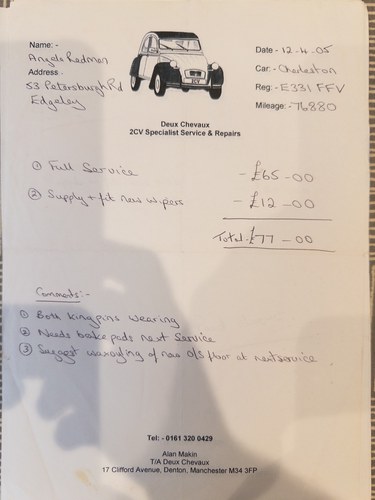 Name: -
Angela Redmon
Address -
53 Petersburgh Rd
Edgeley
Date - 12-4-05
Car: - Charleston
Reg: - E331 FFV
Mileage: - 76880
Deux Chevaux
2CV Specialist Service & Repairs
① Full Service - £65-00
② Supply + fit new wipers - £12-00
Total: £77-00
Comments:-
① Both kingpins wearing
② Needs brake pads next service
③ Suggest waxoyling of new O/S floor at next service.
Tel: - 0161 320 0429
Alan Makin
T/A Deux Chevaux
17 Clifford Avenue, Denton, Manchester M34 3FP